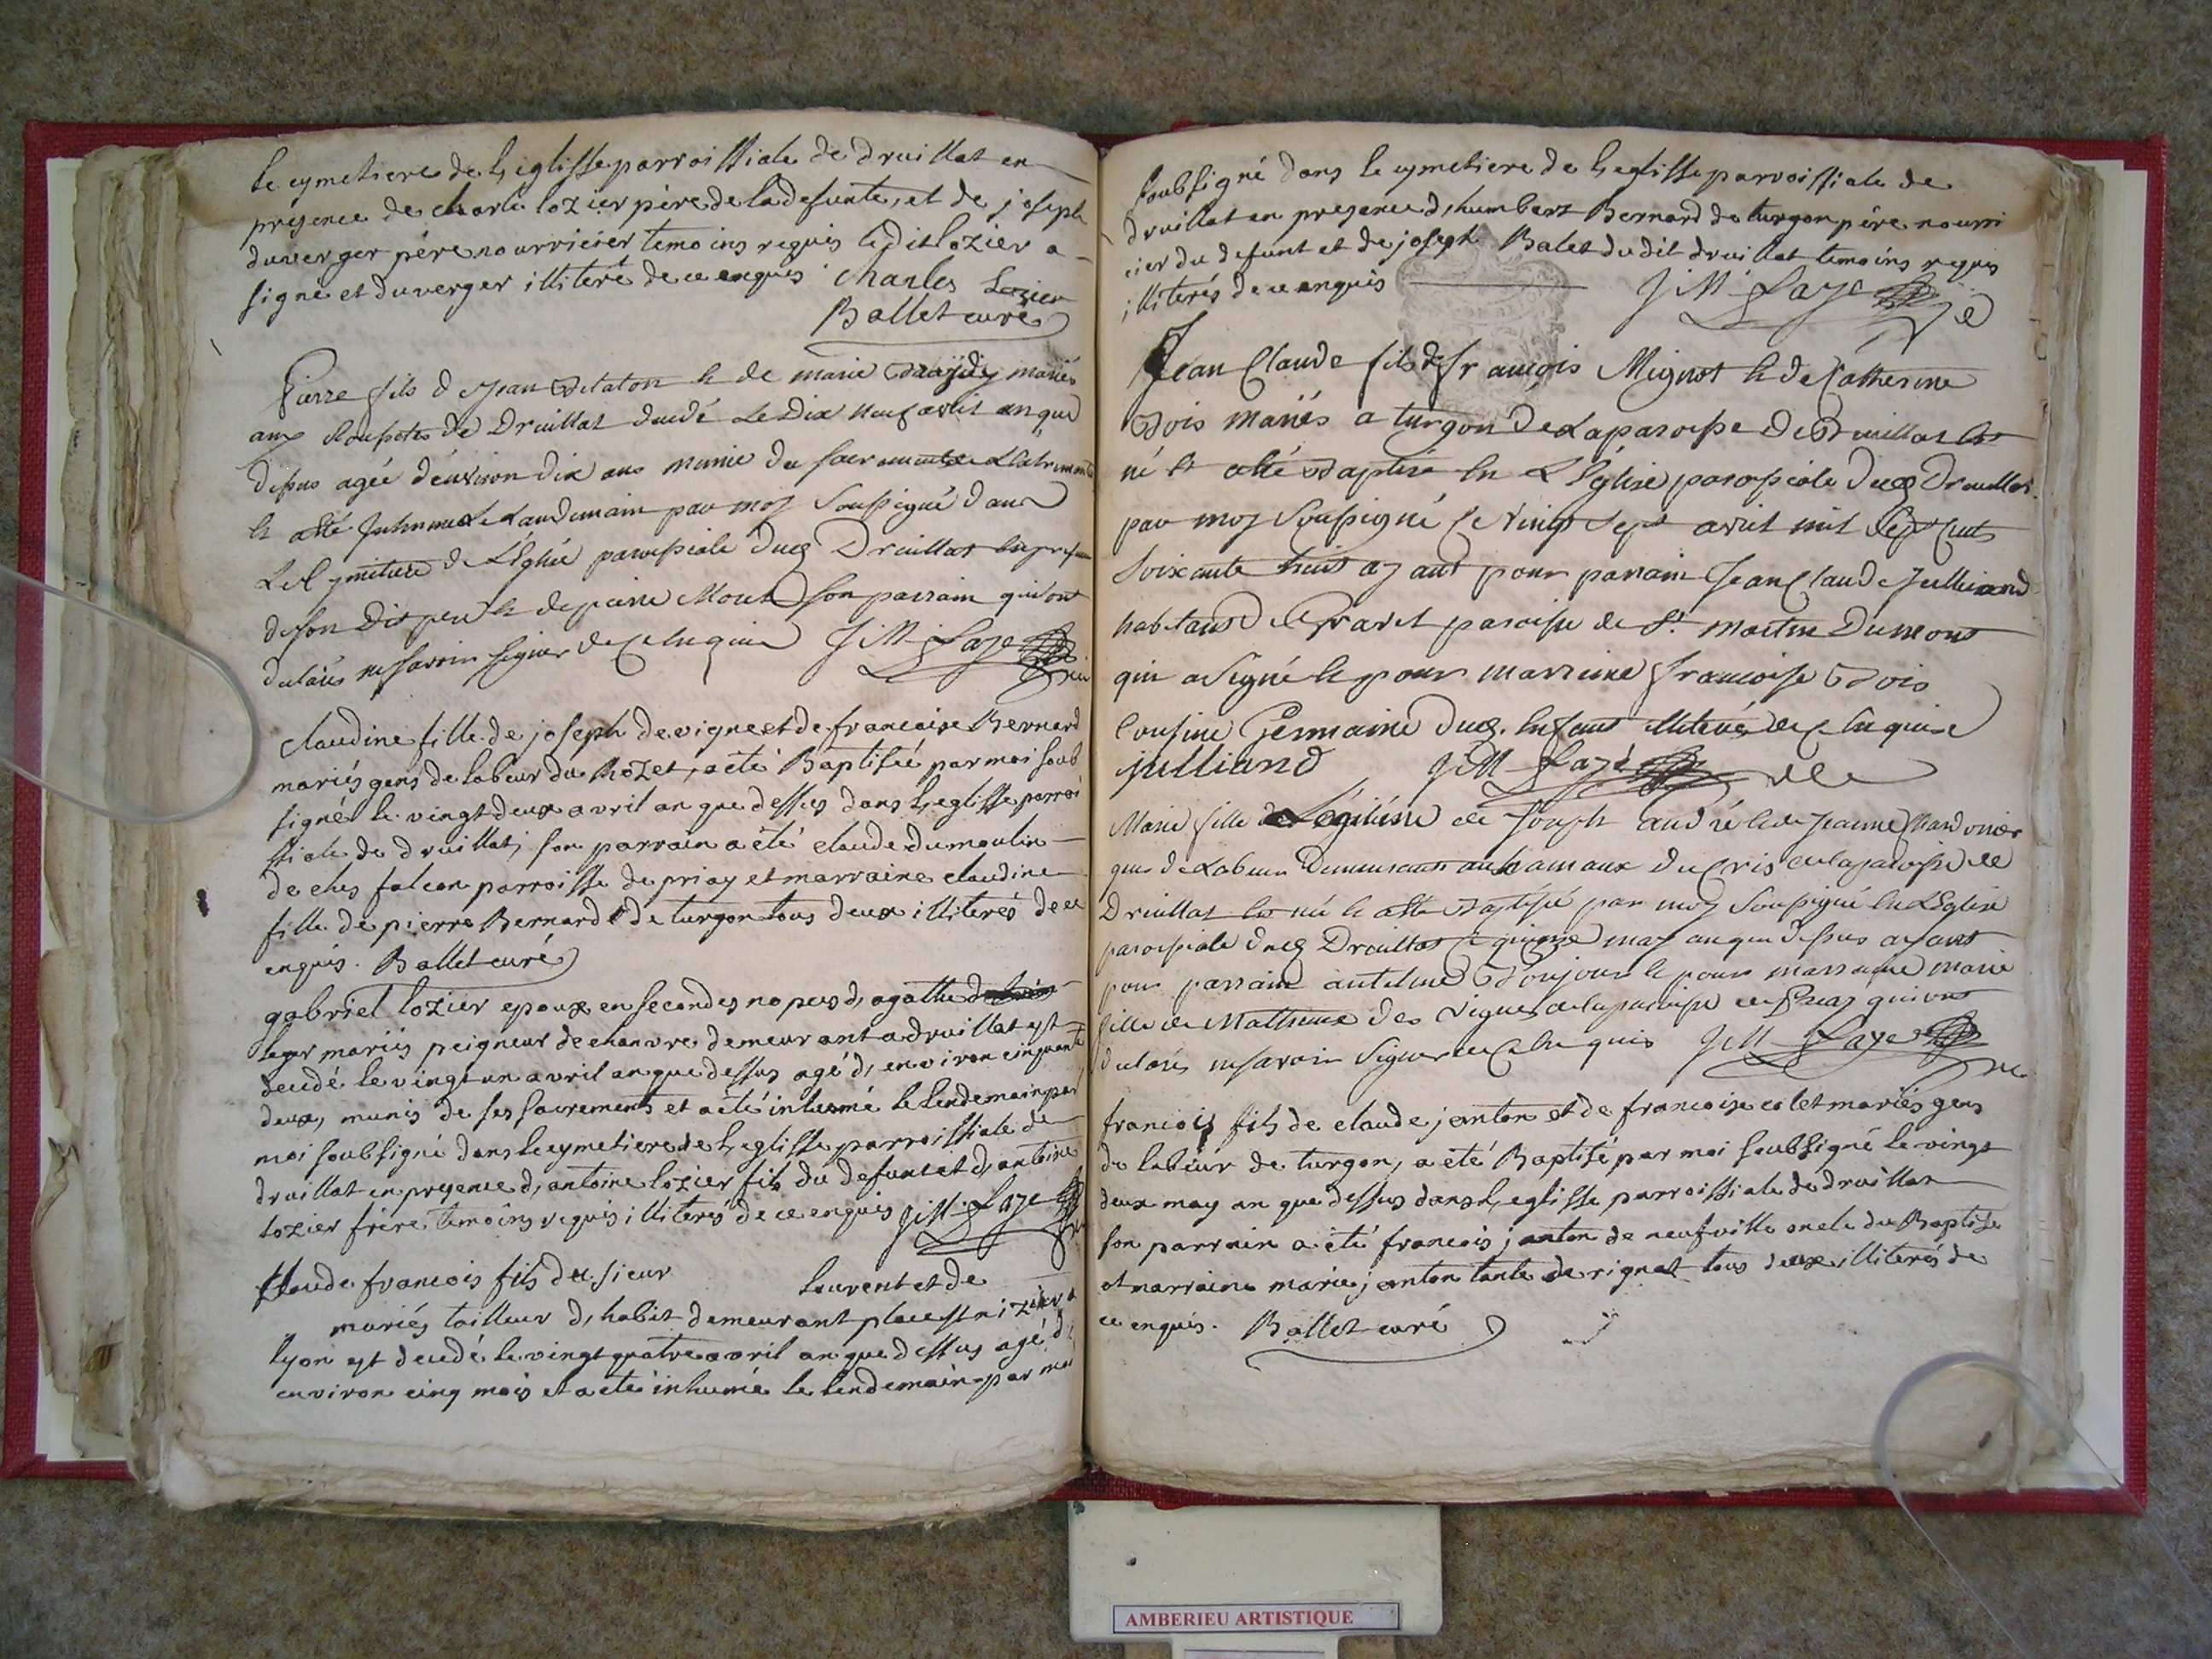 le cymetiere de l, eglisse parroissiale de druillat en
presence de charle lozier père de la defunte, et de joseph
duverger père nourricier temoins requis le dit lozier a
signé et duverger illiteré de ce enquis Charles Lozier
Ballet curé
Pierre fils de Jean et de marie mariés
aux de Druillat decedé Le Dix neuf avril an que
dessus agée d'environ dix ans munie du sacrement
et atté Inhumé Le Landemain par moy Soussigné dans
Le Cymitiere de L'Eglise paroissiale dud Druillat
de son Dit pere et de pierre son parrain qui ont
declarés ne savoir signer de ce enquis J M Laze
claudine fille de joseph devigne et de francoise Bernard
mariés gens de labeur du Rozet, a eté Baptisée par moi soub
signé le vingt deux avril an que dessus dans l, eglisse parroi
ssiale de druillat, son parrain a été claude dumoulin
de chus falcon parroisse de priay et marraine claudine
fille de pierre Bernard de turgon tous deux illiterés de ce
enquis. Ballet curé
gabriel lozier epoux en secondes nopces d, agathe
leger mariés peigneur de chanvre demeurant a druillat est
decedé le vingt un avril an que dessus agé d, environ cinquante
deux, munis de ses sacrements et a été inhumé le lendemain par
moi soubsigné dans le cymetiere de l, eglisse parroissiale de
druillat en presence d, antoine lozier fils du defunt et d, antoine
lozier frère temoins requis illiterés de ce enquis J M Laze
Claude francois fils du sieur laurent et de
mariés tailleur d, habit demeurant place st nizier a
lyon est decedé le vingt quatre avril an que dessus agé d,
environ cinq mois et a eté inhumé le lendemain par moi
soubsigné dans le cymetiere de l, eglisse parroissiale de
druillat en presence d, humbert Bernard de turgon père nourri
cier du defunt et de joseph Balet du dit druillat temoins requis
illiterés de ce enquis J M Laze
Jean Claude fils de francois Mignot et de Catherine
Bois mariés a turgon de La paroisse de Druillat est
né et atté Baptisé en L'Eglise paroissiale dud Druillat
par moy Soussigné le vingt sept avril mil sept cents
Soixante huit ayant pour parrain Jean Claude Julliand
habitant de paroisse de St. martin Dumont
qui a signé et pour marraine francoise Bois
Cousine Germaine dud. Enfant illiterée de ce enquise
julliand J M Lazé
Marie fille Légitime de Joseph André et de Jeanne
gens de Labeur Demeurant au hamaux du Cris de la paroisse de
Druillat est né et atté Baptisé par moy Soussigné en L'Eglise
paroissiale dud Druillat le quinze may an que dessus ayant
pour parrain antelme Bonjour et pour marraine marie
fille de Mathieux des Vignes de la paroisse de Priay qui ont
declarés ne savoir Signer de ce enquis J M Laze
francois fils de claude janton et de francoise colet mariés gens
de labeur de turgon, a été Baptisé par moi soubsigné le vingt
deux may an que dessus dans l, eglisse parroissiale de druillat
son parrain a été francois janton de neufville oncle du Baptisé
et marraine marie janton tante de rignat tous deux illiterés de
ce enquis. Ballet curé
AMBERIEU ARTISTIQUE